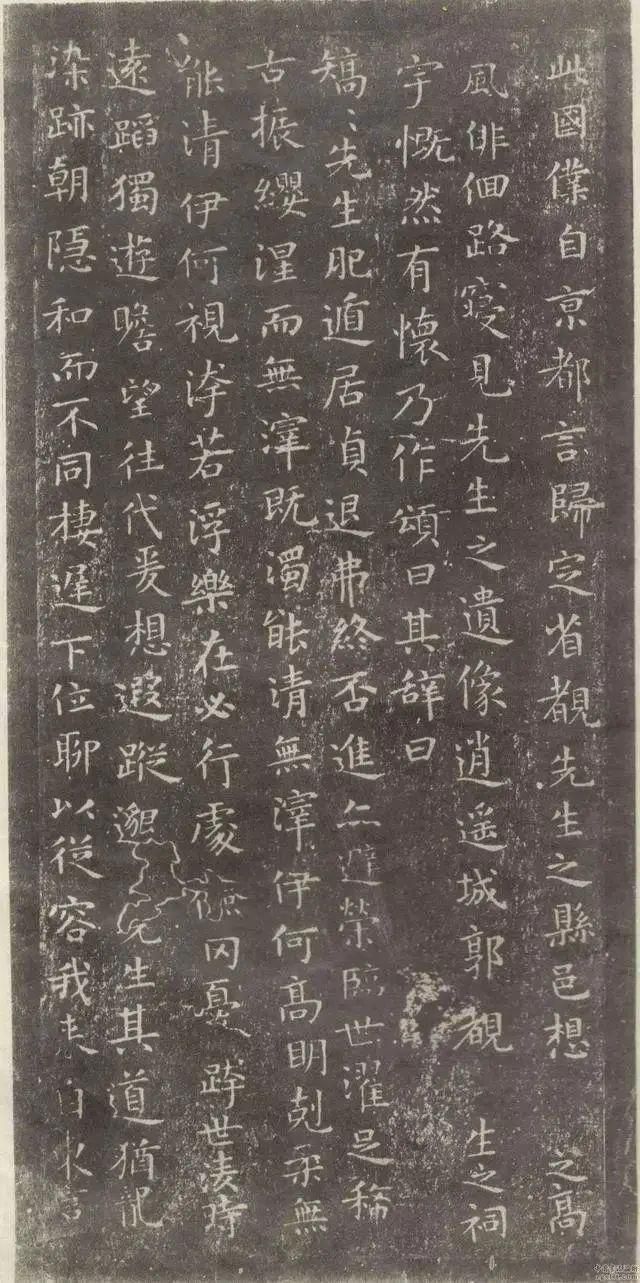 此國僕自京都言歸定省覩先生之縣邑想之高
風俳佪路寝見先生之遺像逍遥城郭覩生之祠
宇慨然有懷乃作頌曰其辭曰
矯〻先生肥遁居貞退弗終否進亦避榮臨世濯足稀
古振纓涅而無滓既濁能清無滓伊何高明剋柔無
能清伊何視汙若浮樂在必行處儉罔憂跨世凌時
遠蹈獨遊瞻望往代爰想遐蹤邈先生其道猶龍
染跡朝隱和而不同棲遲下位聊以從容我来自東言